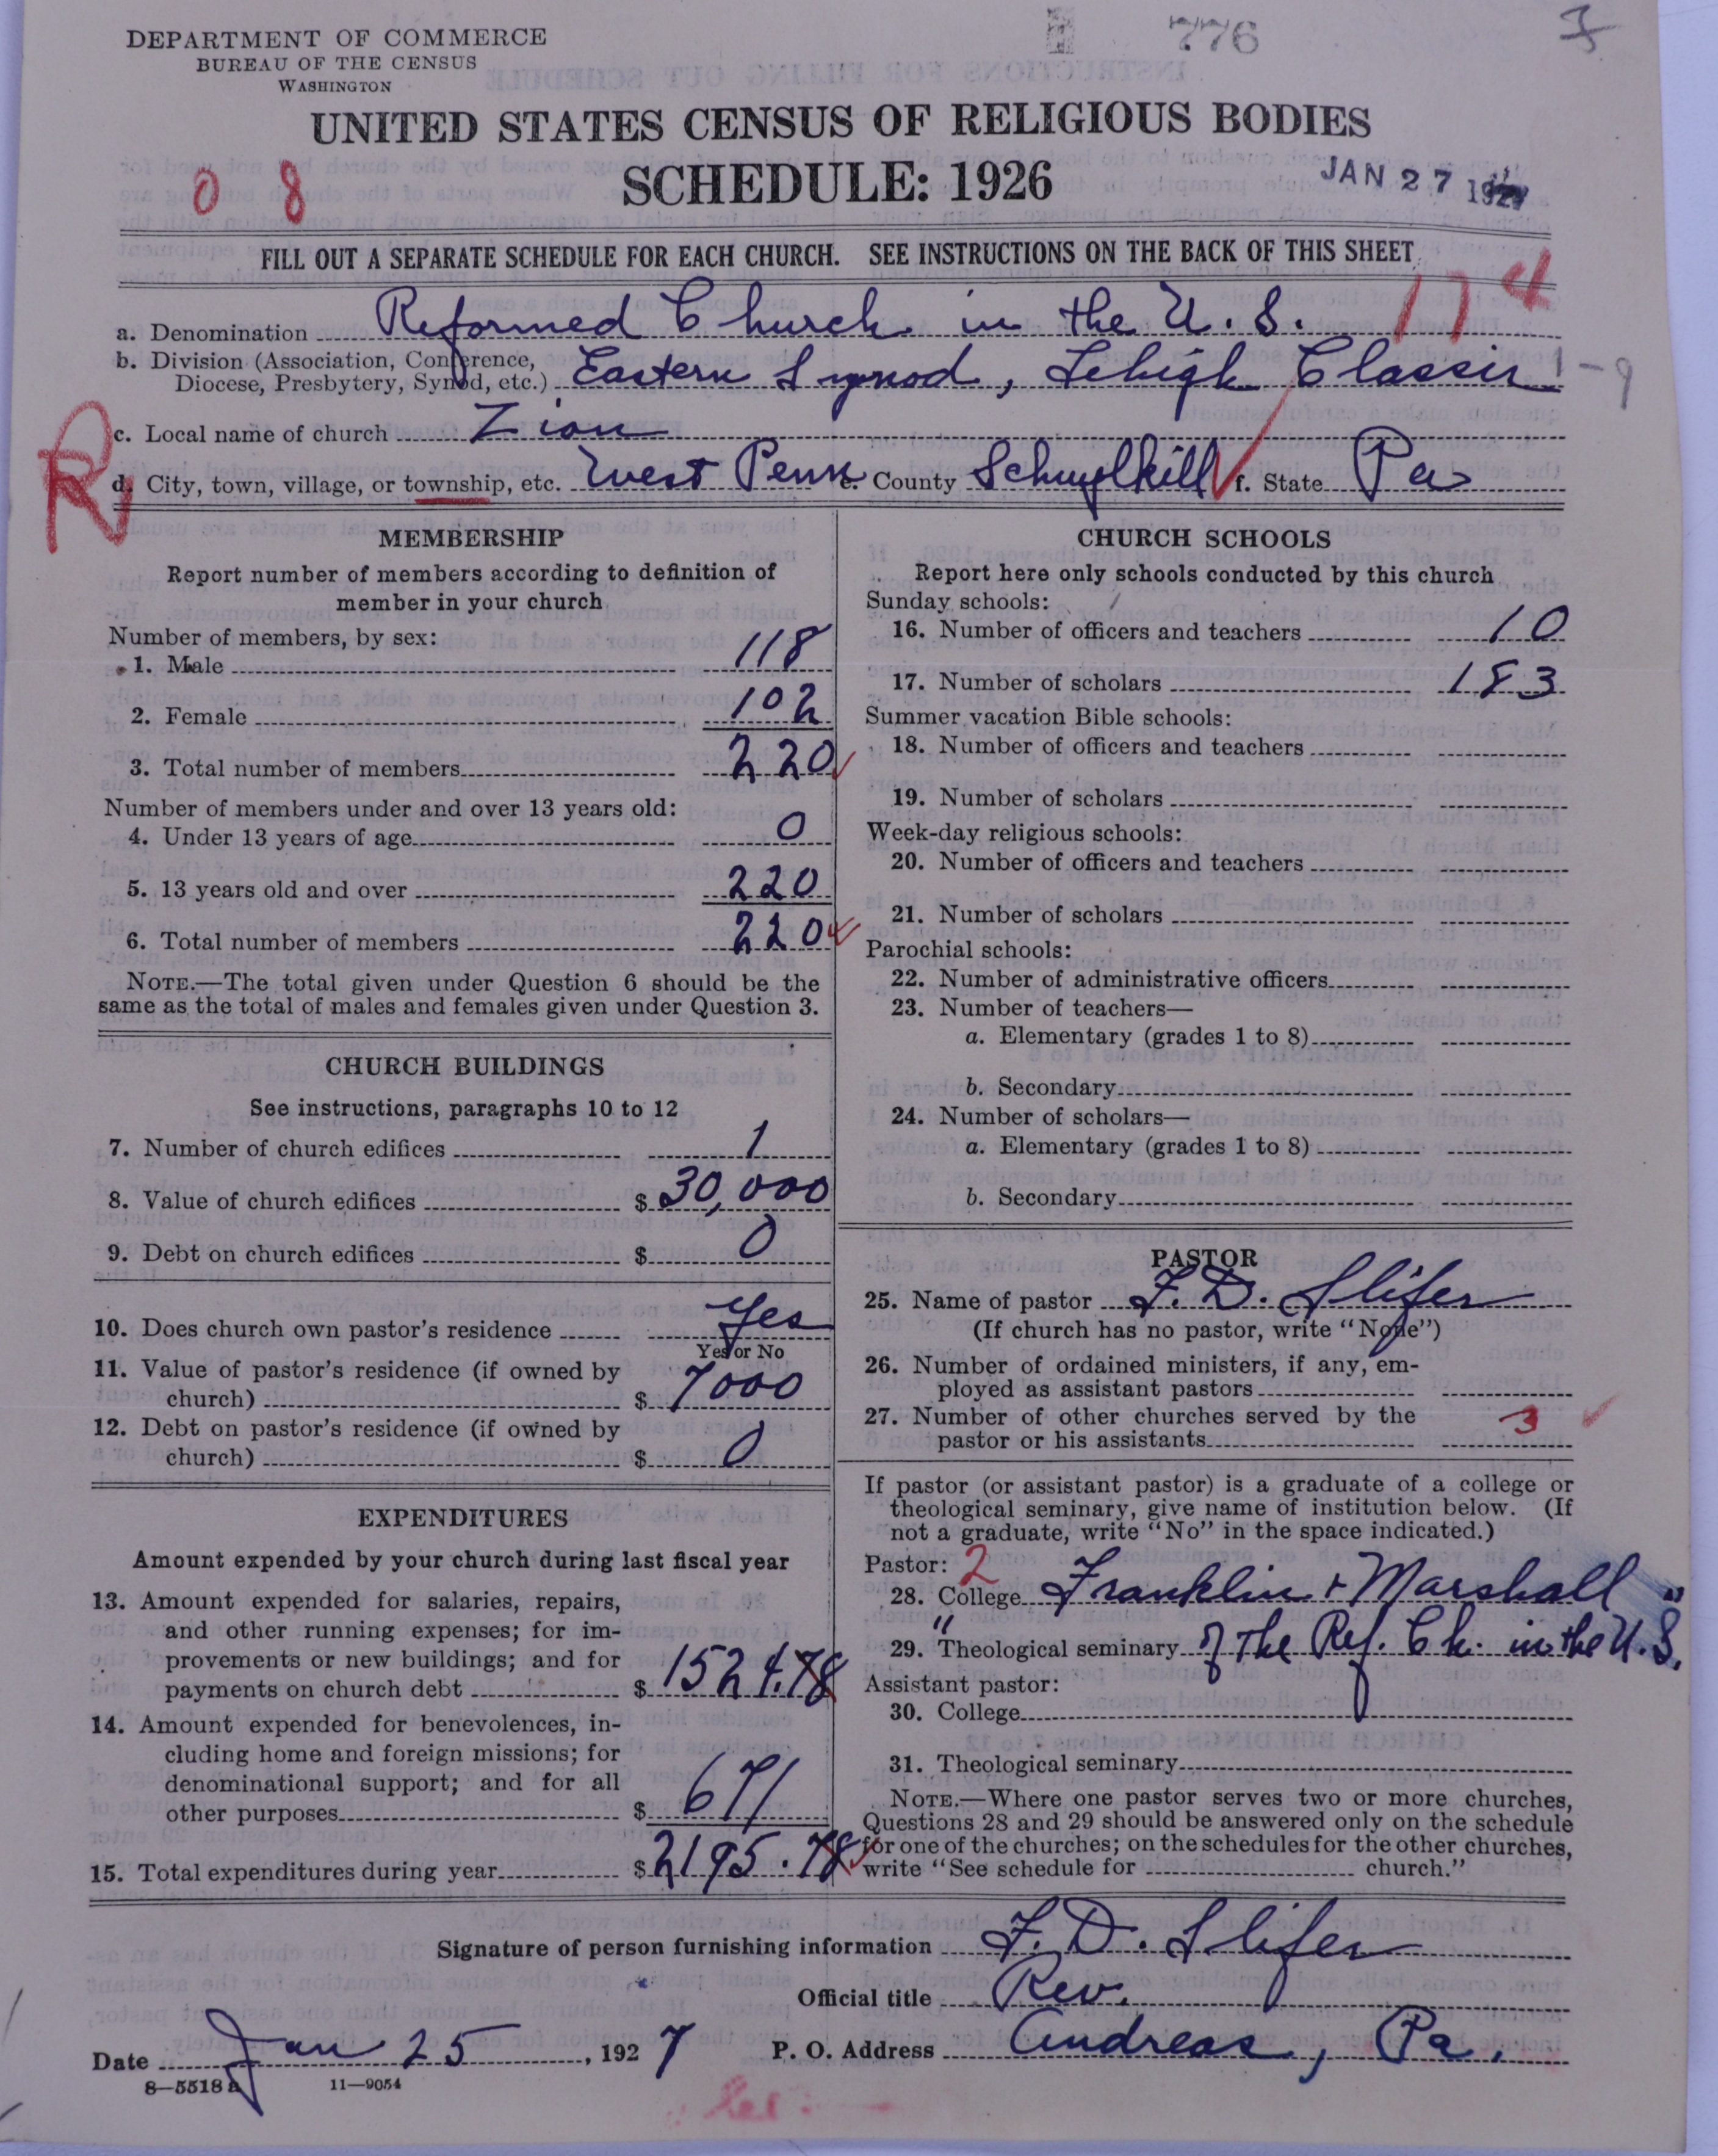 DEPARTMENT OF COMMERCE
BUREAU OF THE CENSUS
WASHINGTON
776
UNITED STATES CENSUS OF RELIGIOUS BODIES
SCHEDULE: 1926
0 8
JAN 27 1927
FILL OUT A SEPARATE SCHEDULE FOR EACH CHURCH. SEE INSTRUCTIONS ON THE BACK OF THIS SHEET
174
a. Denomination Reformed Church in the U. S.
b. Division (Association, Conference,
Diocese, Presbytery, Synod, etc.) Eastern Synod, Lehigh Classis
1-9
c. Local name of church Zion
R
d. City, town, village, or township, etc. West Penn e. County Schuylkill f. State Pa
MEMBERSHIP
Report number of members according to definition of
member in your church
Number of members, by sex:
1. Male 118
2. Female 102
3. Total number of members 220
Number of members under and over 13 years old:
4. Under 13 years of age 0
5. 13 years old and over 220
6. Total number of members 220
NOTE.—The total given under Question 6 should be the
same as the total of males and females given under Question 3.
CHURCH BUILDINGS
See instructions, paragraphs 10 to 12
7. Number of church edifices 1
8. Value of church edifices $ 30,000
9. Debt on church edifices $ 0
10. Does church own pastor's residence Yes
Yes or No
11. Value of pastor's residence (if owned by
church) $ 7000
12. Debt on pastor's residence (if owned by
church) $ 0
EXPENDITURES
Amount expended by your church during last fiscal year
13. Amount expended for salaries, repairs,
and other running expenses; for im-
provements or new buildings; and for
payments on church debt $ 1524.78
14. Amount expended for benevolences, in-
cluding home and foreign missions; for
denominational support; and for all
other purposes $ 671
15. Total expenditures during year $ 2195.78
CHURCH SCHOOLS
Report here only schools conducted by this church
Sunday schools:
16. Number of officers and teachers 10
17. Number of scholars 183
Summer vacation Bible schools:
18. Number of officers and teachers
19. Number of scholars
Week-day religious schools:
20. Number of officers and teachers
21. Number of scholars
Parochial schools:
22. Number of administrative officers
23. Number of teachers—
a. Elementary (grades 1 to 8)
b. Secondary
24. Number of scholars—
a. Elementary (grades 1 to 8)
b. Secondary
PASTOR
25. Name of pastor F. D. Slifer
(If church has no pastor, write "None")
26. Number of ordained ministers, if any, em-
ployed as assistant pastors
27. Number of other churches served by the
pastor or his assistants 3
If pastor (or assistant pastor) is a graduate of a college or
theological seminary, give name of institution below. (If
not a graduate, write "No" in the space indicated.)
Pastor: 2
28. College Franklin + Marshall
29. "Theological seminary of the Ref. Ch. in the U.S."
Assistant pastor:
30. College
31. Theological seminary
NOTE.—Where one pastor serves two or more churches,
Questions 28 and 29 should be answered only on the schedule
for one of the churches; on the schedules for the other churches,
write "See schedule for church."
Signature of person furnishing information F. D. Slifer
Official title Rev.
Date Jan 25, 1927 P. O. Address Andreas, Pa.
8—5518 a 11—9054